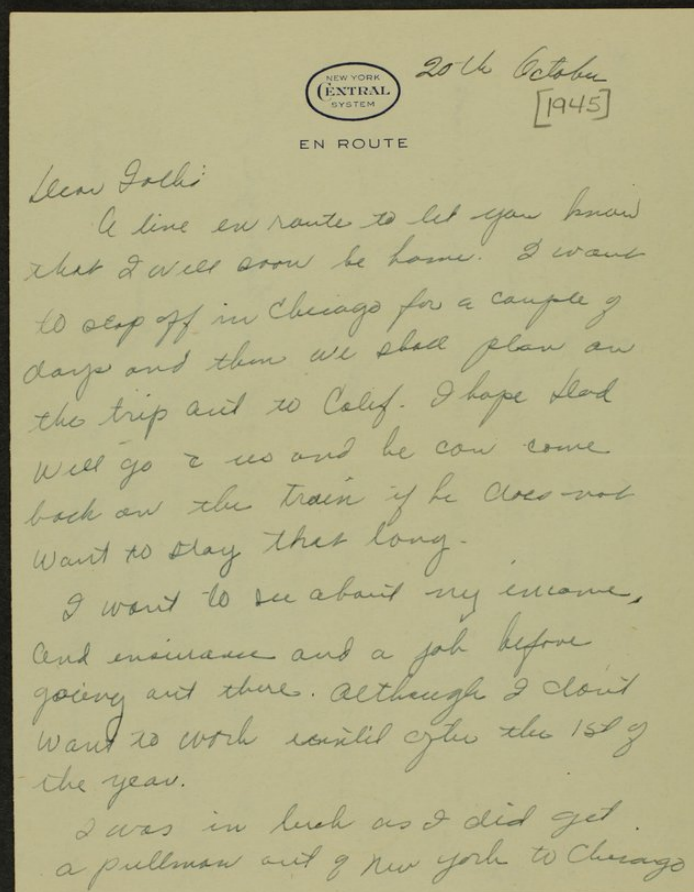 NEW YORK
CENTRAL
SYSTEM
EN ROUTE
20th October
[1945]
Dear Folks:
A line en route to let you know
that I will soon be home. I want
to stop off in Chicago for a couple of
days and then we shall plan on
the trip out to Calif. I hope Dad
will go c̄ us and he can come
back on the train if he does not
want to stay that long.
I want to see about my income,
and insurance and a job before
going out there. Although I don't
want to work until after the 1st of
the year.
I was in luck as I did get
a pullman out of New York to Chicago